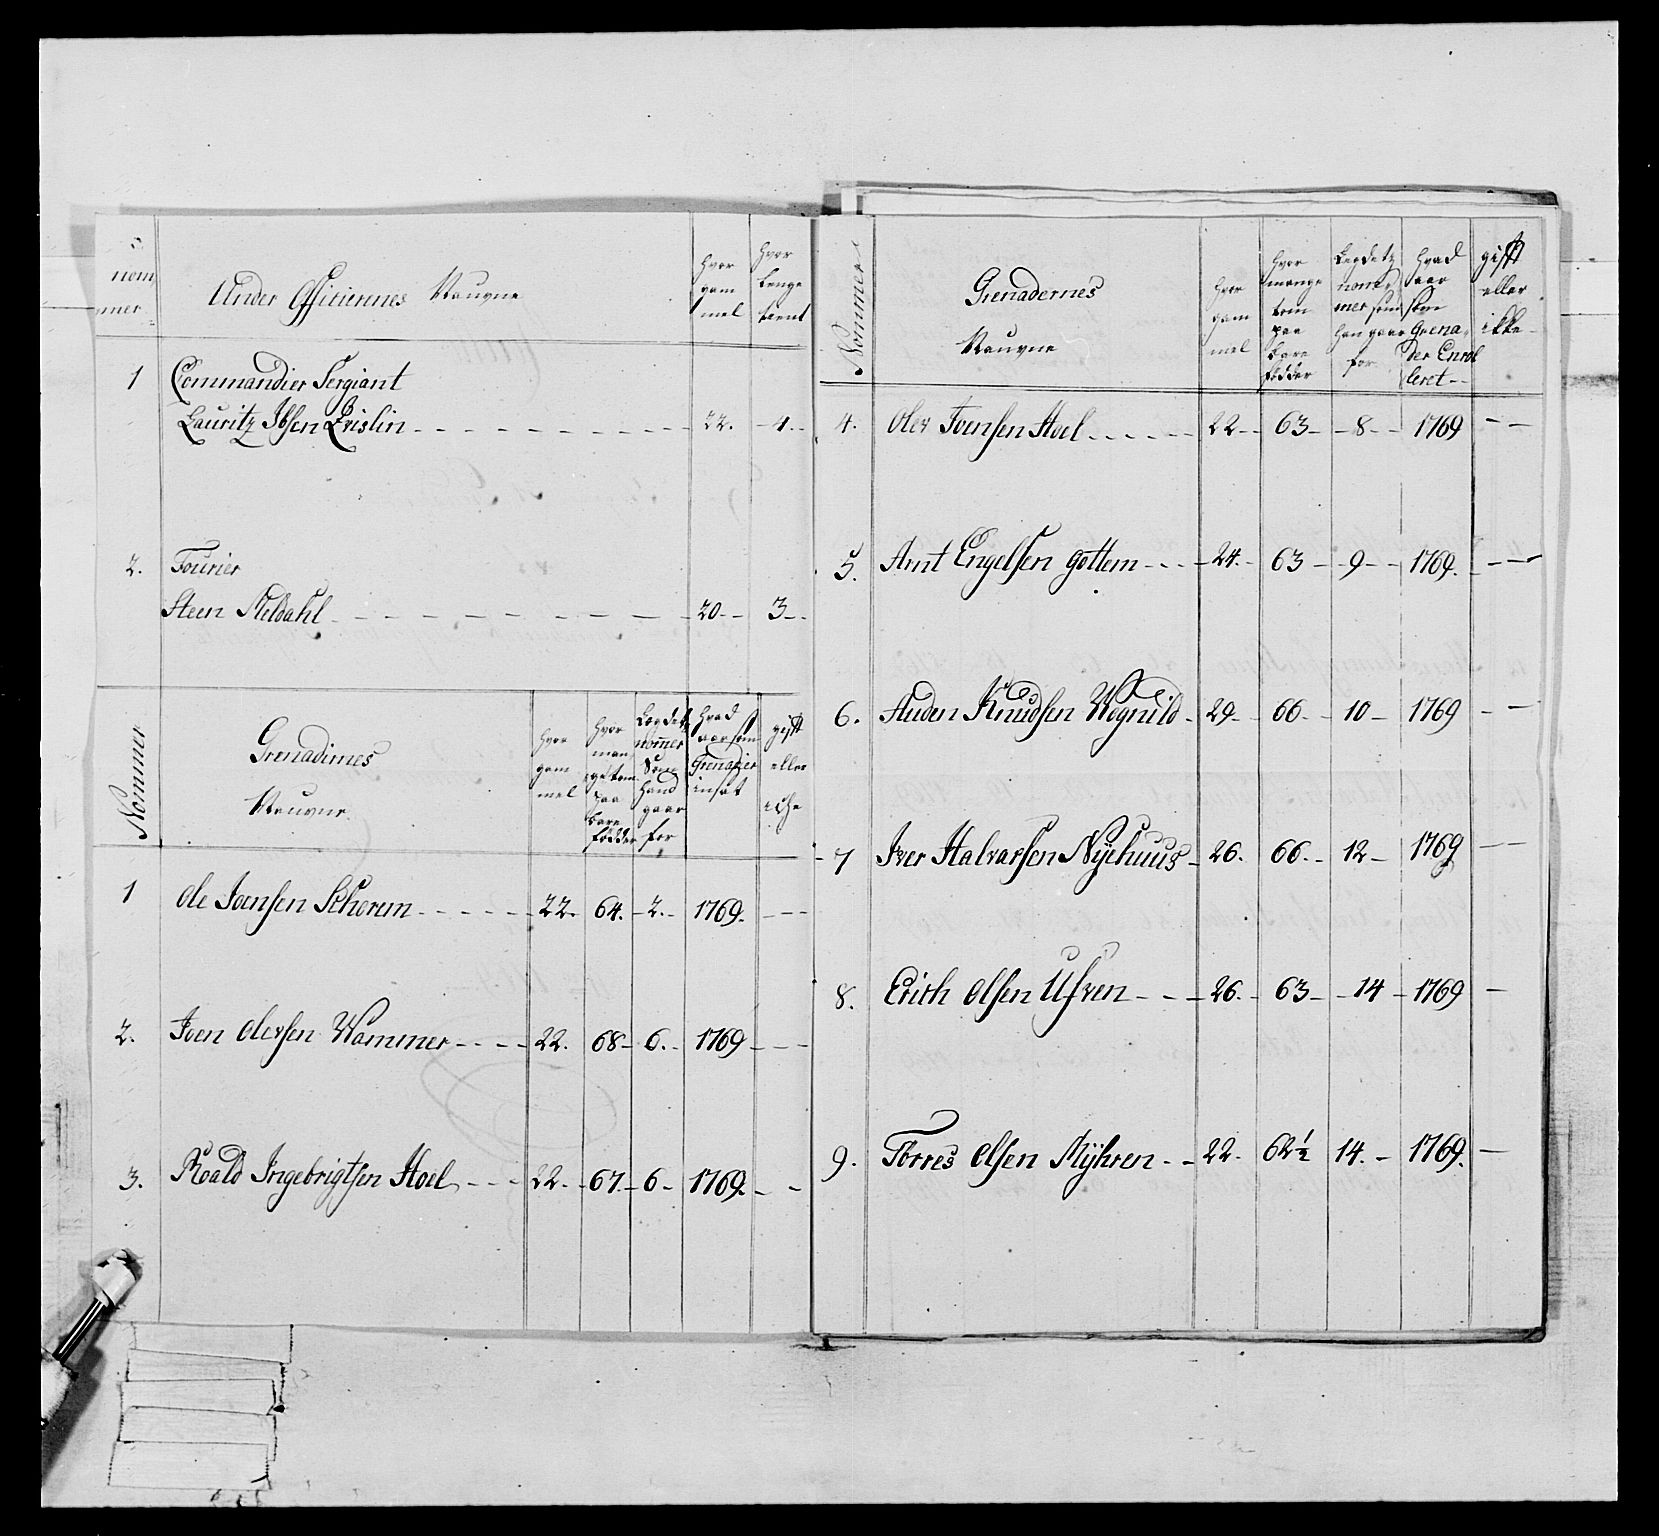 nom
mer
Under Officiernes Nauvne
hvor
gam
mel
hvor
lenge
tient
1 Commandier Sergiant
Lauritz Ibsen Brislin 22. 4.
2. Fourier
Steen Meldahl 20 3
Nommer
Grenadirnes
Nauvne
hvor
gam
mel
hvor
man
ge tom
paa
bare
födder
Legdets
nomer
Som
hand
gaar
for
hvad
aar som
Grenader
insat
gifft
eller
icke
1 Ole Joensen Schorem 22. 64. 2. 1769.
2. Joen Olersen Wammer 22. 68 6. 1769
3. Roald Ingebrigtsen Hoel 22. 67. 6 1769.
Nommer
Grenadernes
Nauvne
hvor
gam
mel
hvor
mange
tom
paa
bare
födder
Legdets
nom
mer som
han gaar
for
hvad
aar
som
Grena
der Enrol
leret
gifft
eller
ikke
4. Oler Joensen Hoel 22 63 8 1769
5. Arnt Engelsen Gottem 24. 63 9 1769.
6. Auden Knudsen Wognild 29 66 10 1769
7 Iver Halvarsen Nyehuus 26. 66. 12 1769
8. Erich Olsen Ufven 26. 63 14 1769
9. Torres Olsen Myhren 22. 62½ 14. 1769.